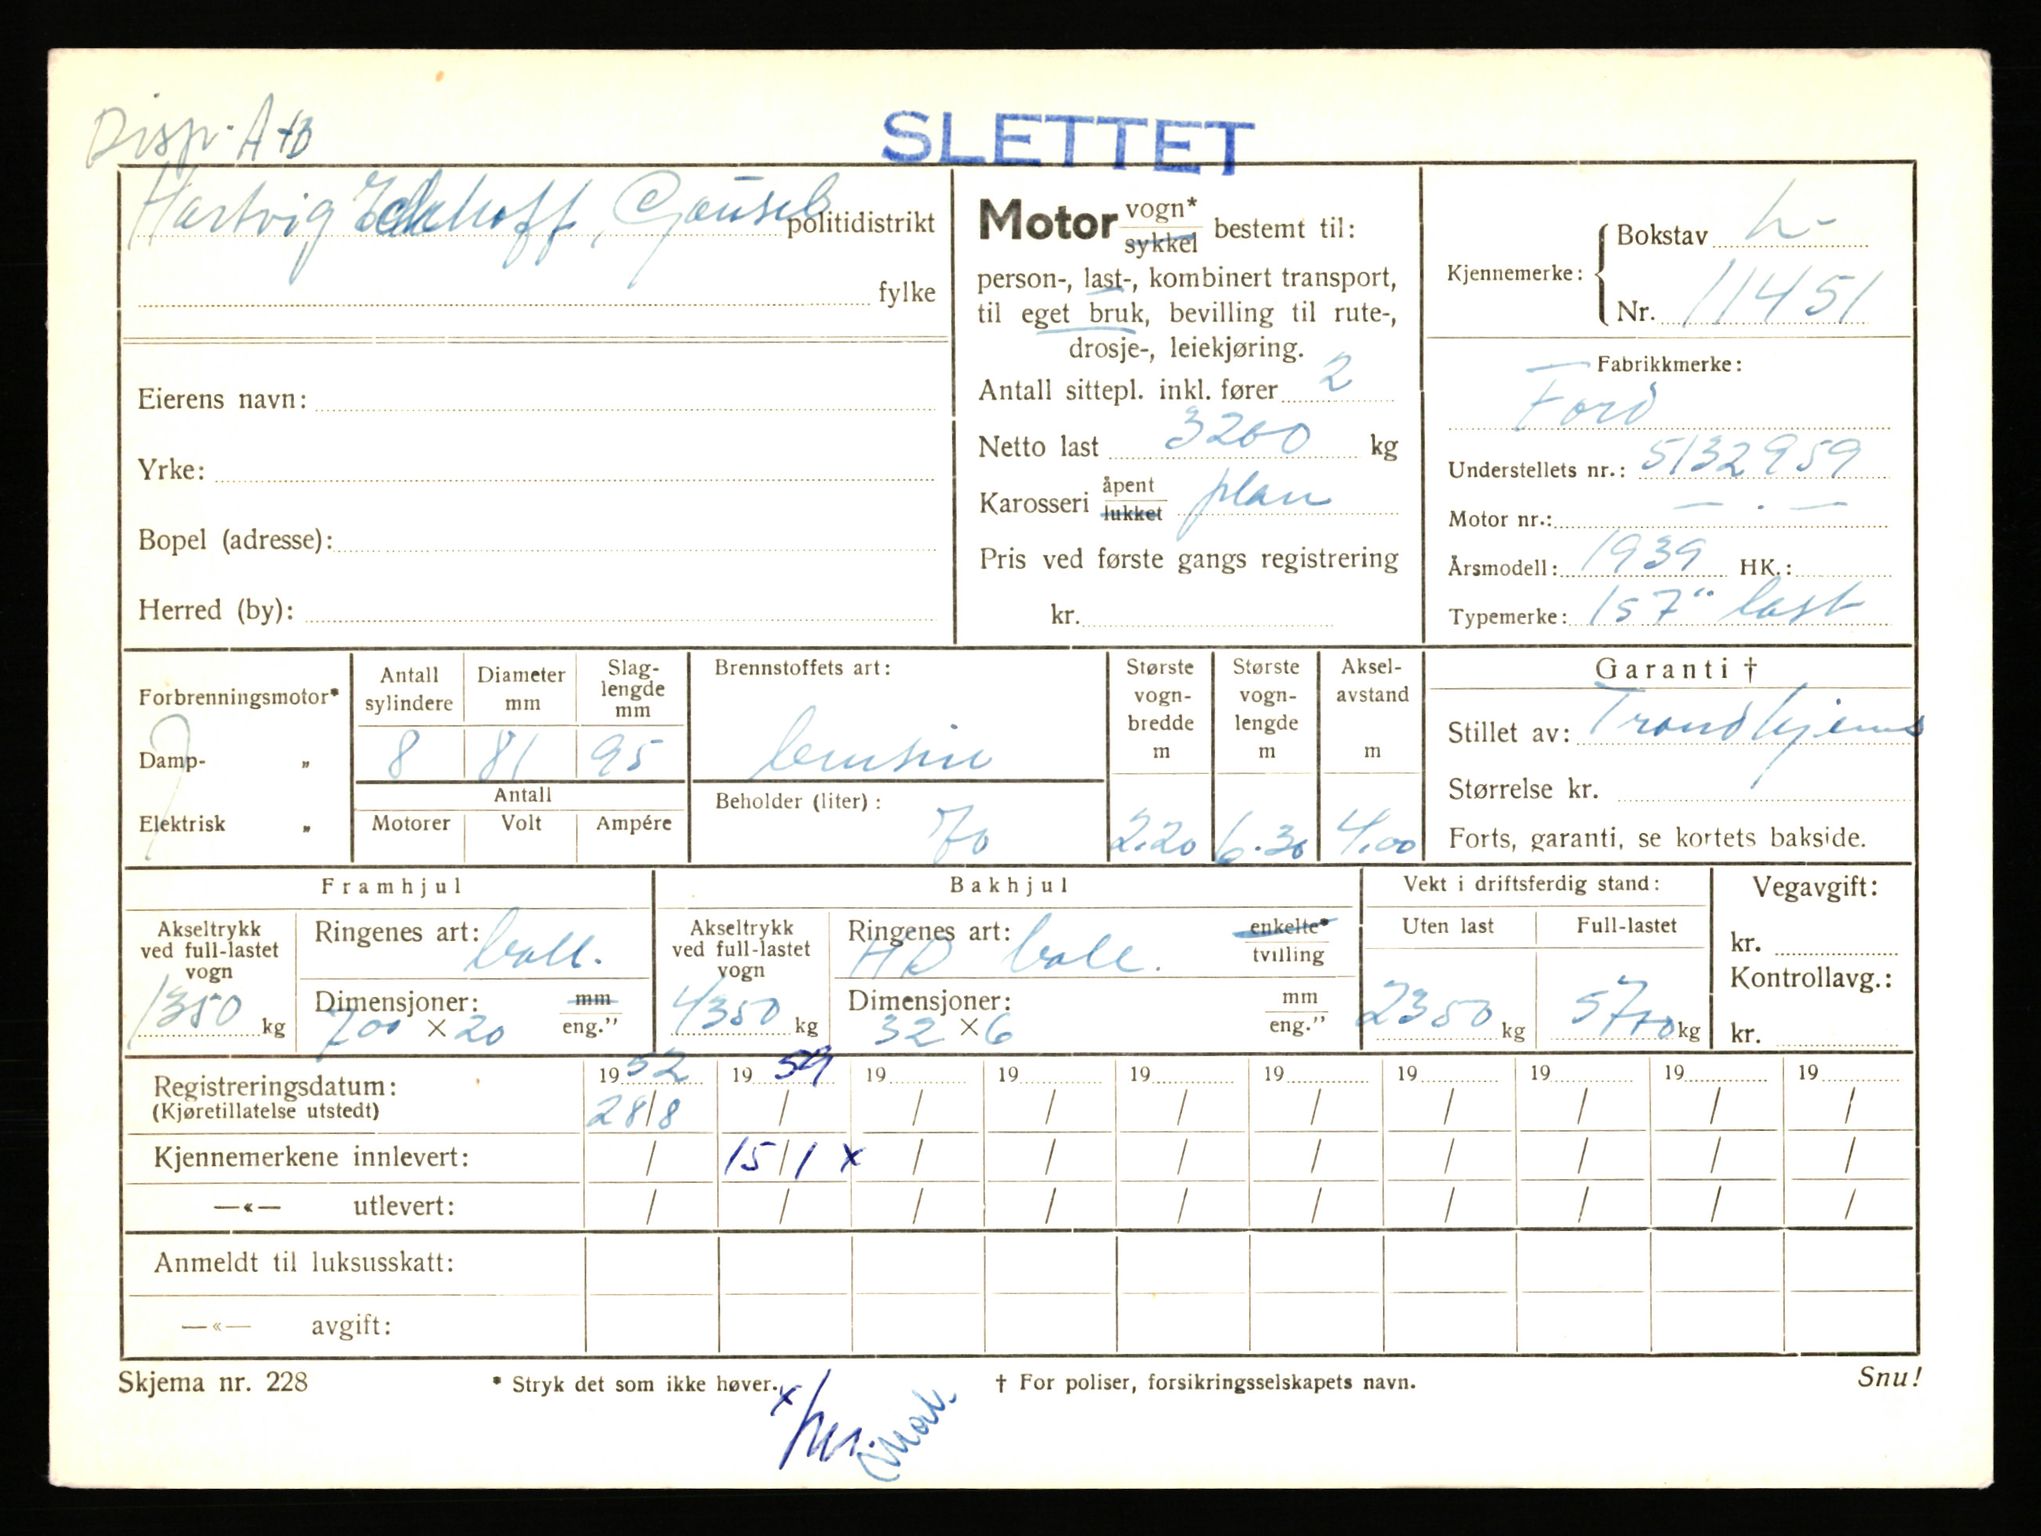 Disp. A+B
SLETTET
Hartvig Eckhoff, Gausel politidistrikt
fylke
Eierens navn:
Yrke:
Bopel (adresse):
Herred (by):
Motor vogn* sykkel bestemt til:
person-, last-, kombinert transport,
til eget bruk, bevilling til rute-,
drosje-, leiekjøring.
Antall sittepl. inkl. fører 2
Netto last 3200 kg
Karosseri åpent lukket plan
Pris ved første gangs registrering
kr.
Kjennemerke: Bokstav L-
Nr. 11451
Fabrikkmerke:
Ford
Understellets nr.: 5132959
Motor nr.: — . —
Årsmodell: 1939 HK.:
Typemerke: 157" last
Forbrenningsmotor*
Damp- "
Elektrisk "
Antall sylindere 8
Diameter mm 81
Slaglengde mm 95
Antall
Motorer Volt Ampére
Brennstoffets art:
bensin
Beholder (liter):
70
Største vognbredde m 2.20
Største vognlengde m 6.30
Akselavstand m 4.00
Garanti †
Stillet av: Trondhjems
Størrelse kr.
Forts, garanti, se kortets bakside.
Framhjul
Akseltrykk ved full-lastet vogn 1350 kg
Ringenes art: ball.
Dimensjoner: mm eng."
700 × 20
Bakhjul
Akseltrykk ved full-lastet vogn 4350 kg
Ringenes art: enkelte* tvilling
HD ball.
Dimensjoner: mm eng."
32 × 6
Vekt i driftsferdig stand:
Uten last 2350 kg
Full-lastet 5700 kg
Vegavgift:
kr.
Kontrollavg.:
kr.
Registreringsdatum: 1952 1959 19 19 19 19 19 19 19 19
(Kjøretillatelse utstedt) 28/8 / / / / / / / / /
Kjennemerkene innlevert: / 15/1 x / / / / / / / /
—«— utlevert: / / / / / / / / / /
Anmeldt til luksusskatt:
—«— avgift:
Skjema nr. 228
* Stryk det som ikke høver.
† For poliser, forsikringsselskapets navn.
Snu!
x